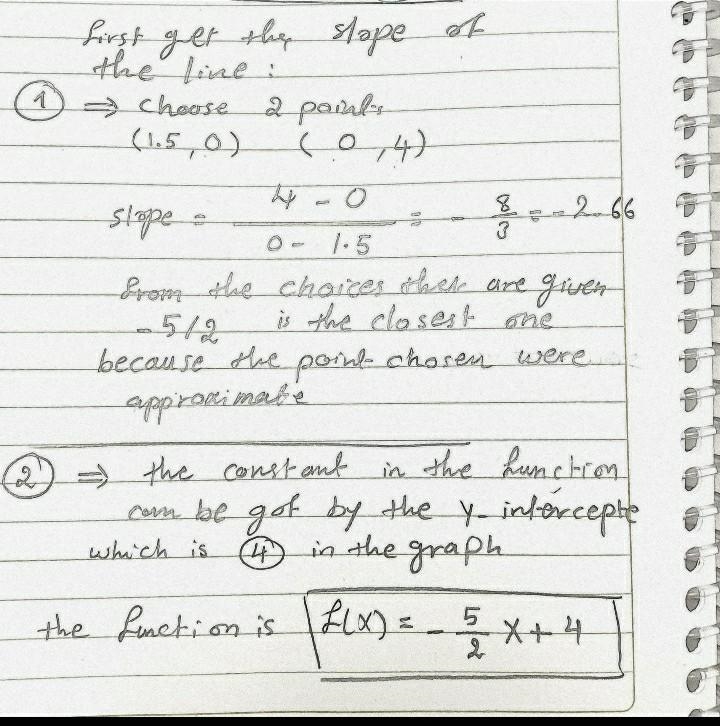 first get the slope of
the line :
① ⇒ choose 2 points
(1.5, 0) ( 0 ,4)
slope = \frac{4 - 0}{0 - 1.5} = - \frac{8}{3} = - 2.66
from the choices that are given
- 5/2 is the closest one
because the point chosen were
approximate
② ⇒ the constant in the function
can be got by the y- intercepte
which is ④ in the graph
the function is f(x) = - \frac{5}{2} x + 4